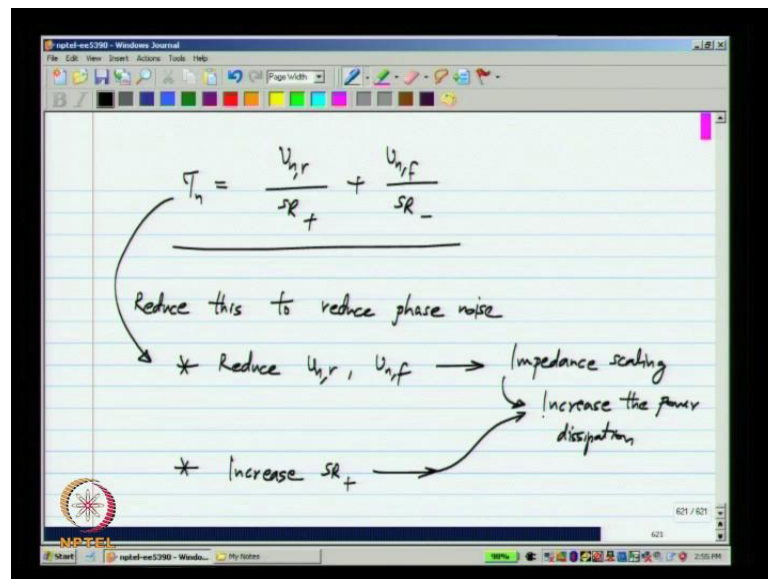 nptel-ee5390 - Windows Journal
File Edit View Insert Actions Tools Help
Page Width
B I
τn = Un,r / SR+ + Un,f / SR-
Reduce this to reduce phase noise
* Reduce Un,r, Un,f → Impedance scaling
Increase the power
dissipation
* Increase SR+
621 / 621
621
NPTEL
Start nptel-ee5390 - Windo... My Notes 98% 2:55 PM